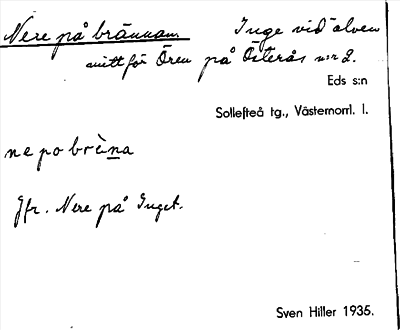 Nere på brännan. Inge vid älven
mitt för Ören på Österås n:r 2.
Eds s:n
Sollefteå tg., Västernorrl. l.
ne po brèna
Jfr. Nere på Inget.
Sven Hiller 1935.